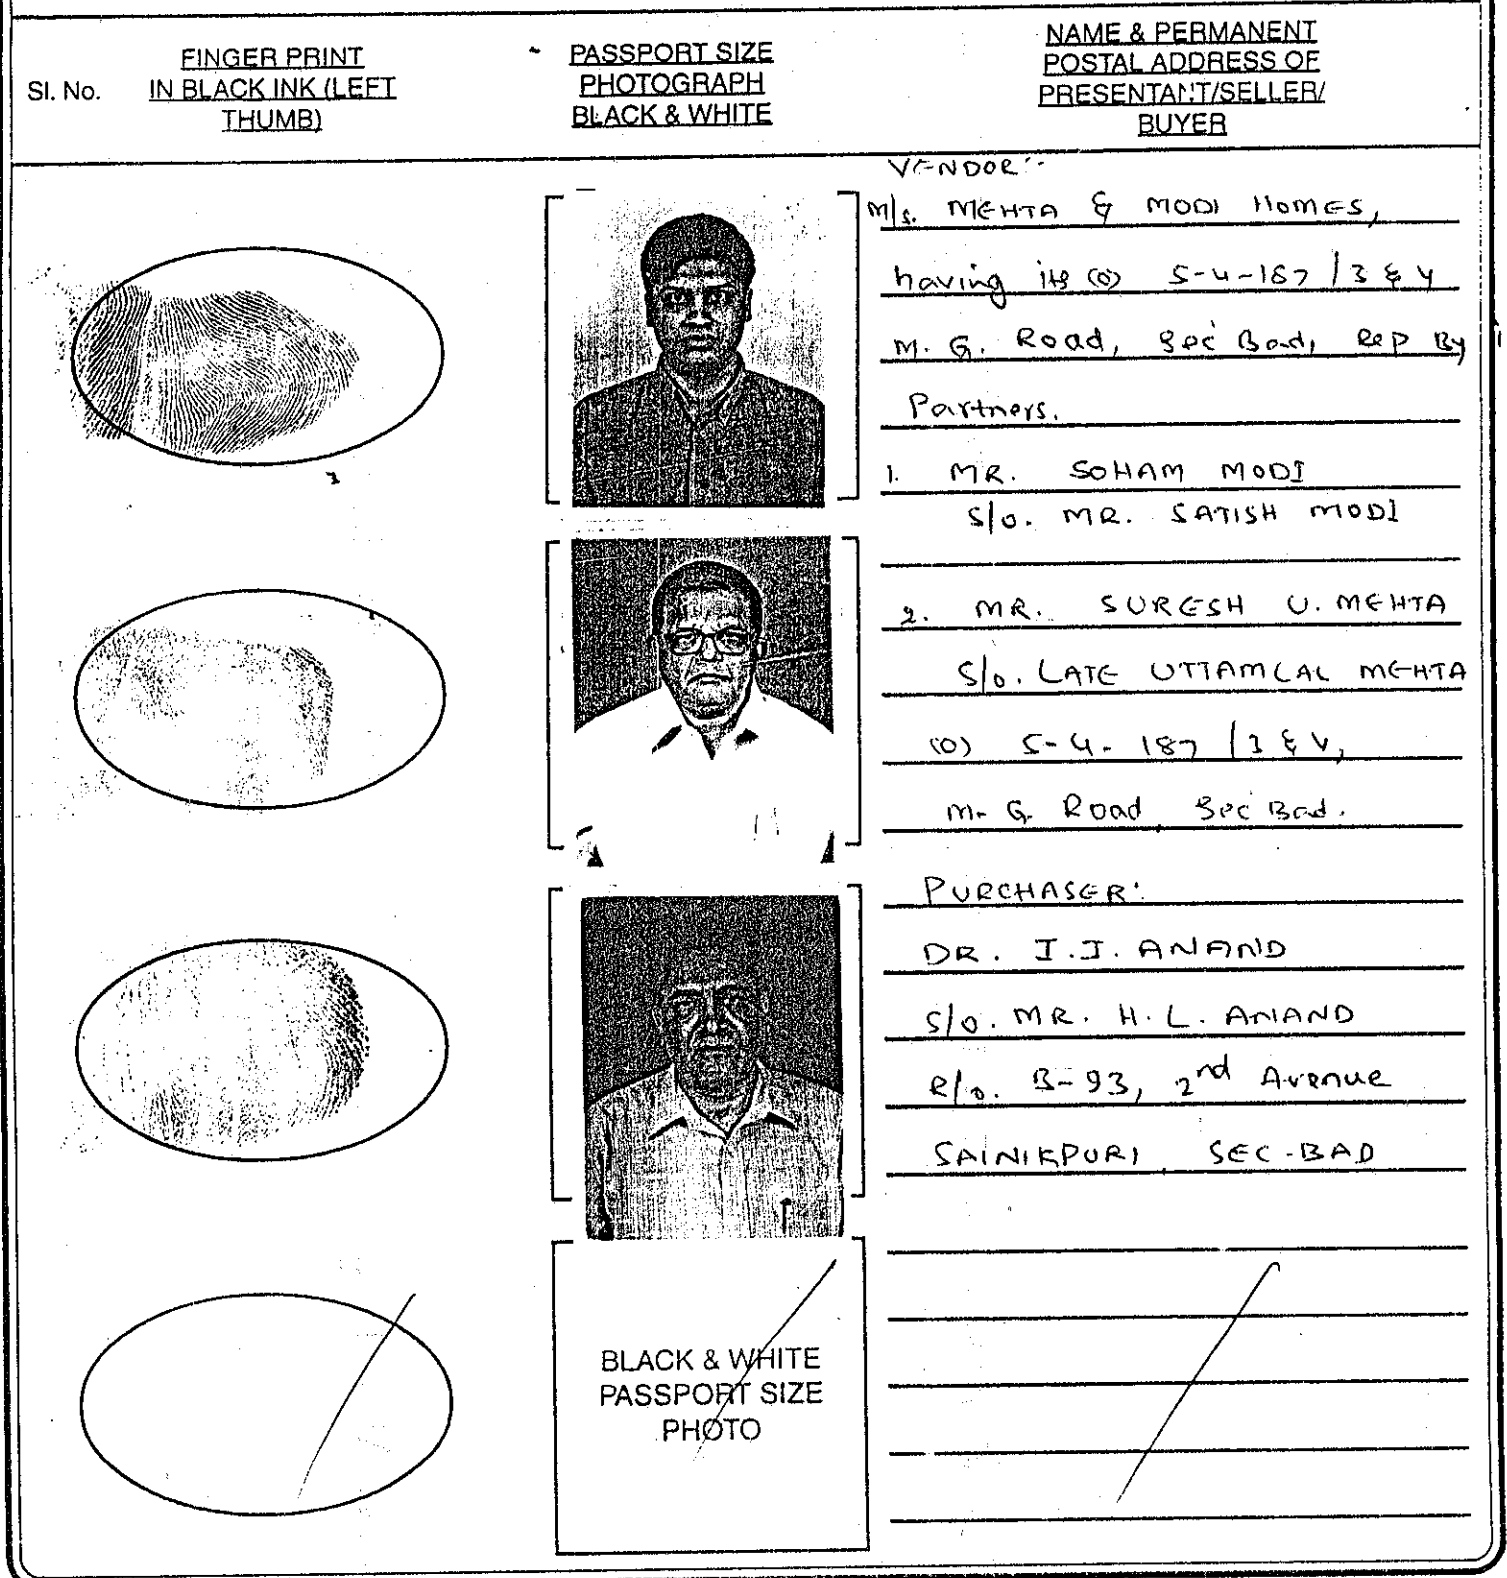 Sl. No.
FINGER PRINT
IN BLACK INK (LEFT
THUMB)
PASSPORT SIZE
PHOTOGRAPH
BLACK & WHITE
NAME & PERMANENT
POSTAL ADDRESS OF
PRESENTANT/SELLER/
BUYER
VENDOR:-
M/s. MEHTA & MODI HOMES,
having its (O) 5-4-187/3 & 4
M. G. Road, Sec'Bad, Rep By
Partners.
1. MR. SOHAM MODI
S/o. MR. SATISH MODI
2. MR. SURESH U. MEHTA
S/o. LATE UTTAMLAL MEHTA
(O) 5-4-187/3 & 4,
M. G. Road, Sec'Bad.
PURCHASER:
DR. I.J. ANAND
S/o. MR. H.L. ANAND
R/o. B-93, 2nd Avenue
SAINIKPURI, SEC-BAD
BLACK & WHITE
PASSPORT SIZE
PHOTO